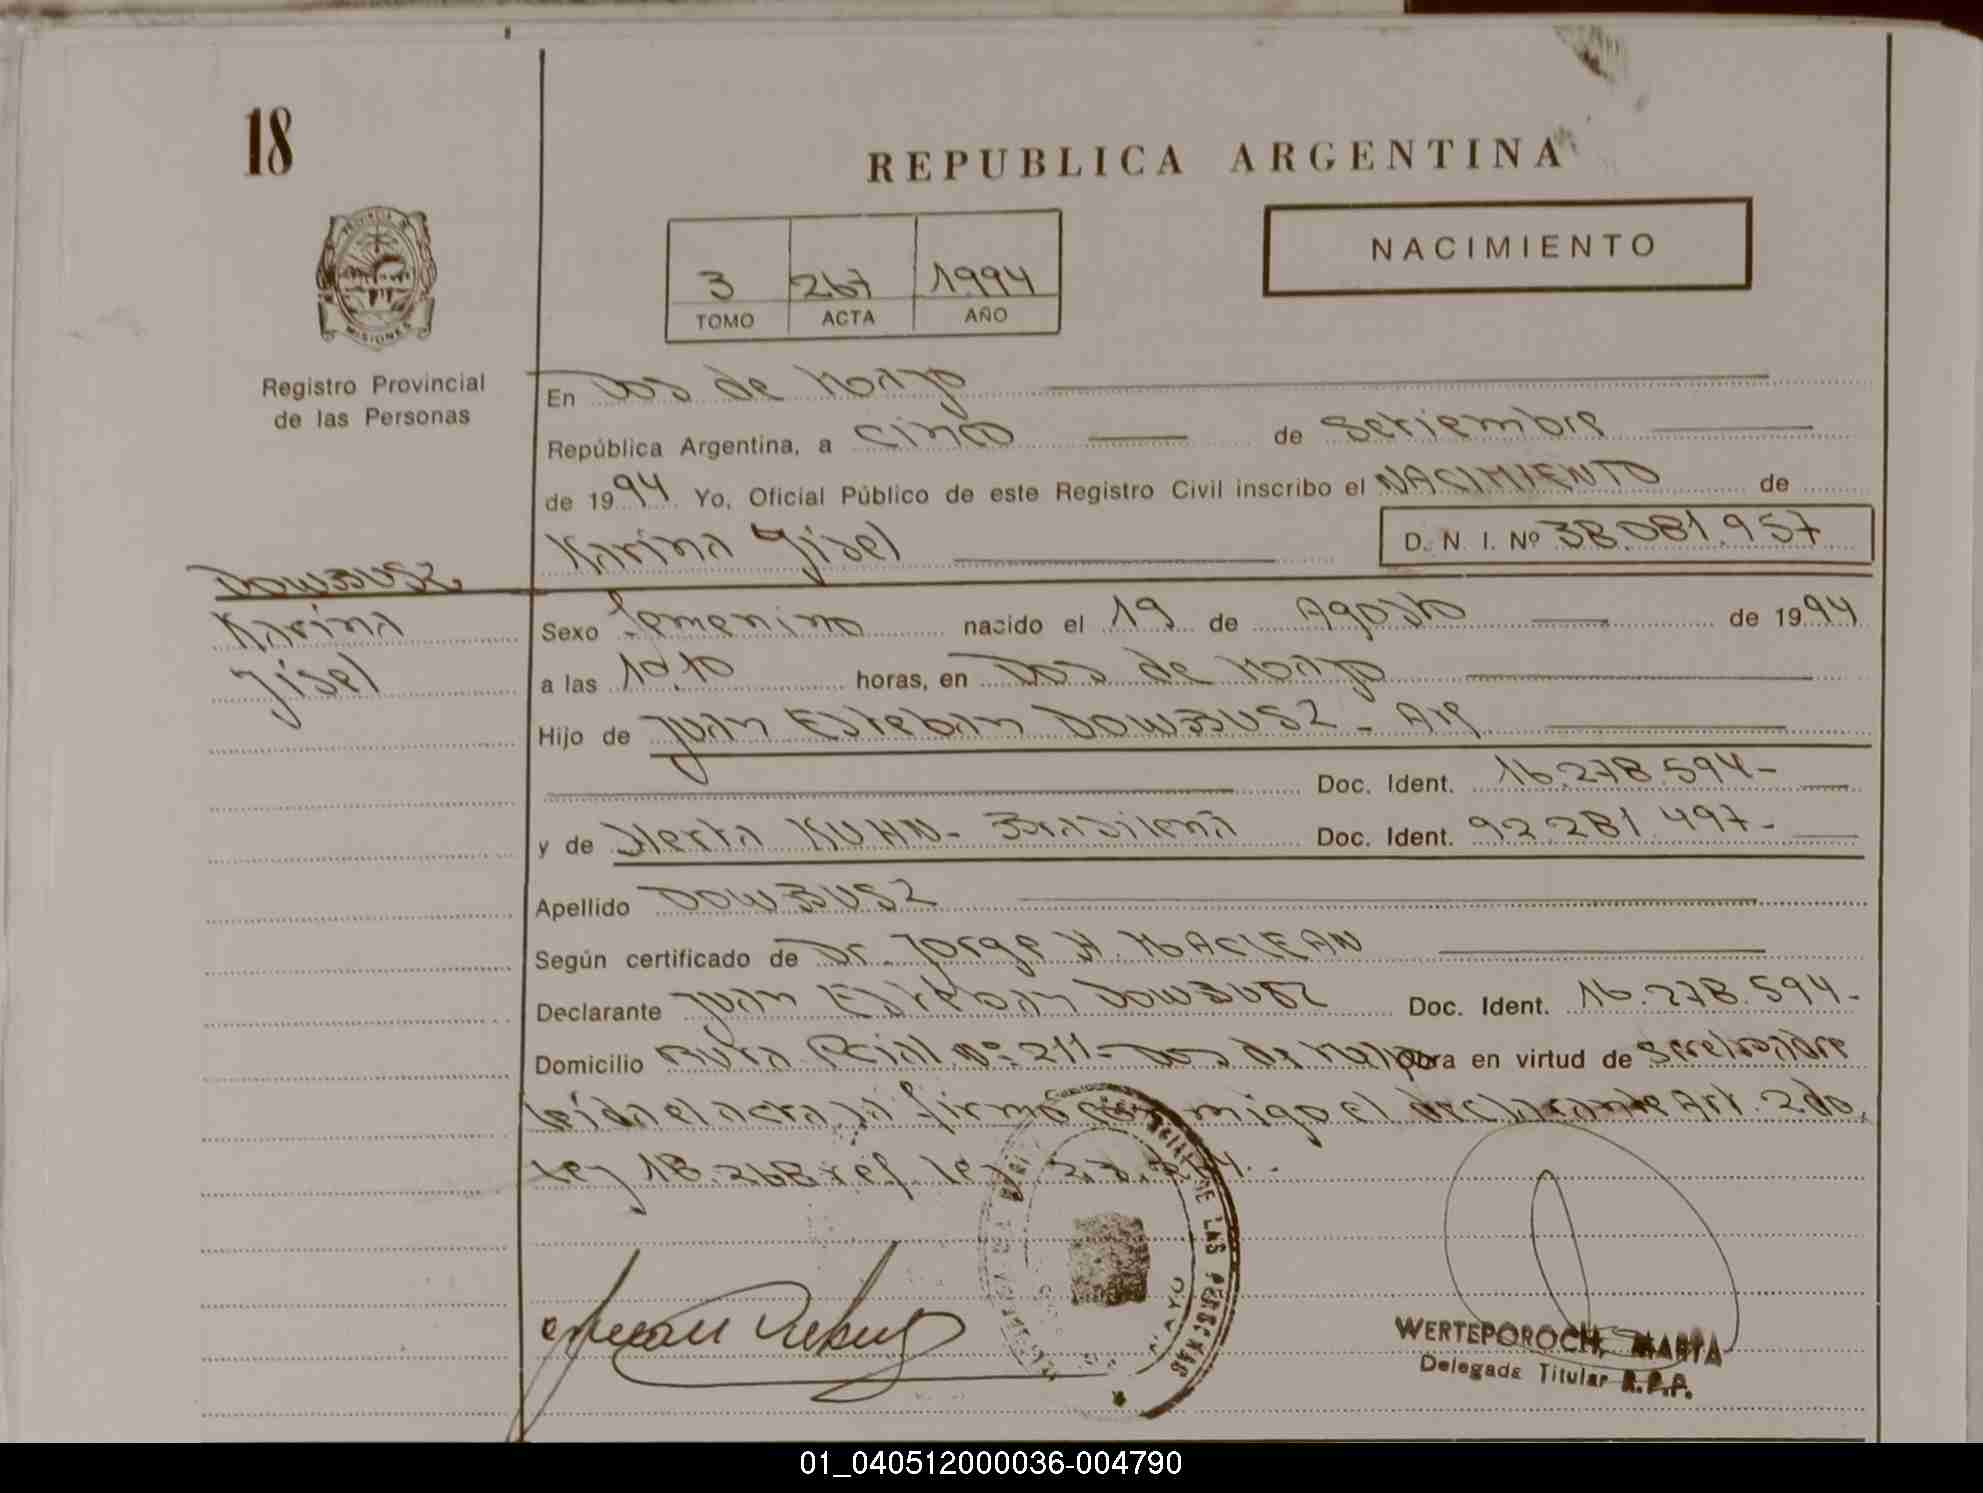 18
REPUBLICA ARGENTINA
NACIMIENTO
3 267 1994
TOMO ACTA AÑO
PROVINCIA DE
MISIONES
Registro Provincial
de las Personas
En Dos de Mayo
República Argentina, a cinco de setiembre
de 1994 Yo, Oficial Público de este Registro Civil inscribo el NACIMIENTO de
Karina Jisel D. N. I. Nº 38.081.957
DOWBUSZ
Karina
Jisel
Sexo femenino nacido el 19 de Agosto de 1994
a las 10.10 horas, en Dos de Mayo
Hijo de Juan Esteban DOWBUSZ - Arg
Doc. Ident. 16.278.594-
y de Herta KUHN - Brasileña Doc. Ident. 92.281.497-
Apellido DOWBUSZ
Según certificado de Dr. Jorge H. MACLEAN
Declarante Juan Esteban DOWBUSZ Doc. Ident. 16.278.594-
Domicilio Ruta Pcial Nº 211 - Dos de Mayo obra en virtud de ser el padre
leída el acta la firmó conmigo el declarante Art. 2do.
Ley 18.248 ref. ley
DE LAS PERSONAS
MAYO
WERTEPOROCH, MARTA
Delegada Titular R.P.P.
01_040512000036-004790